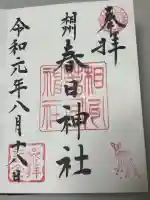 奉拝
相州
春日神社
令和元年八月十八日